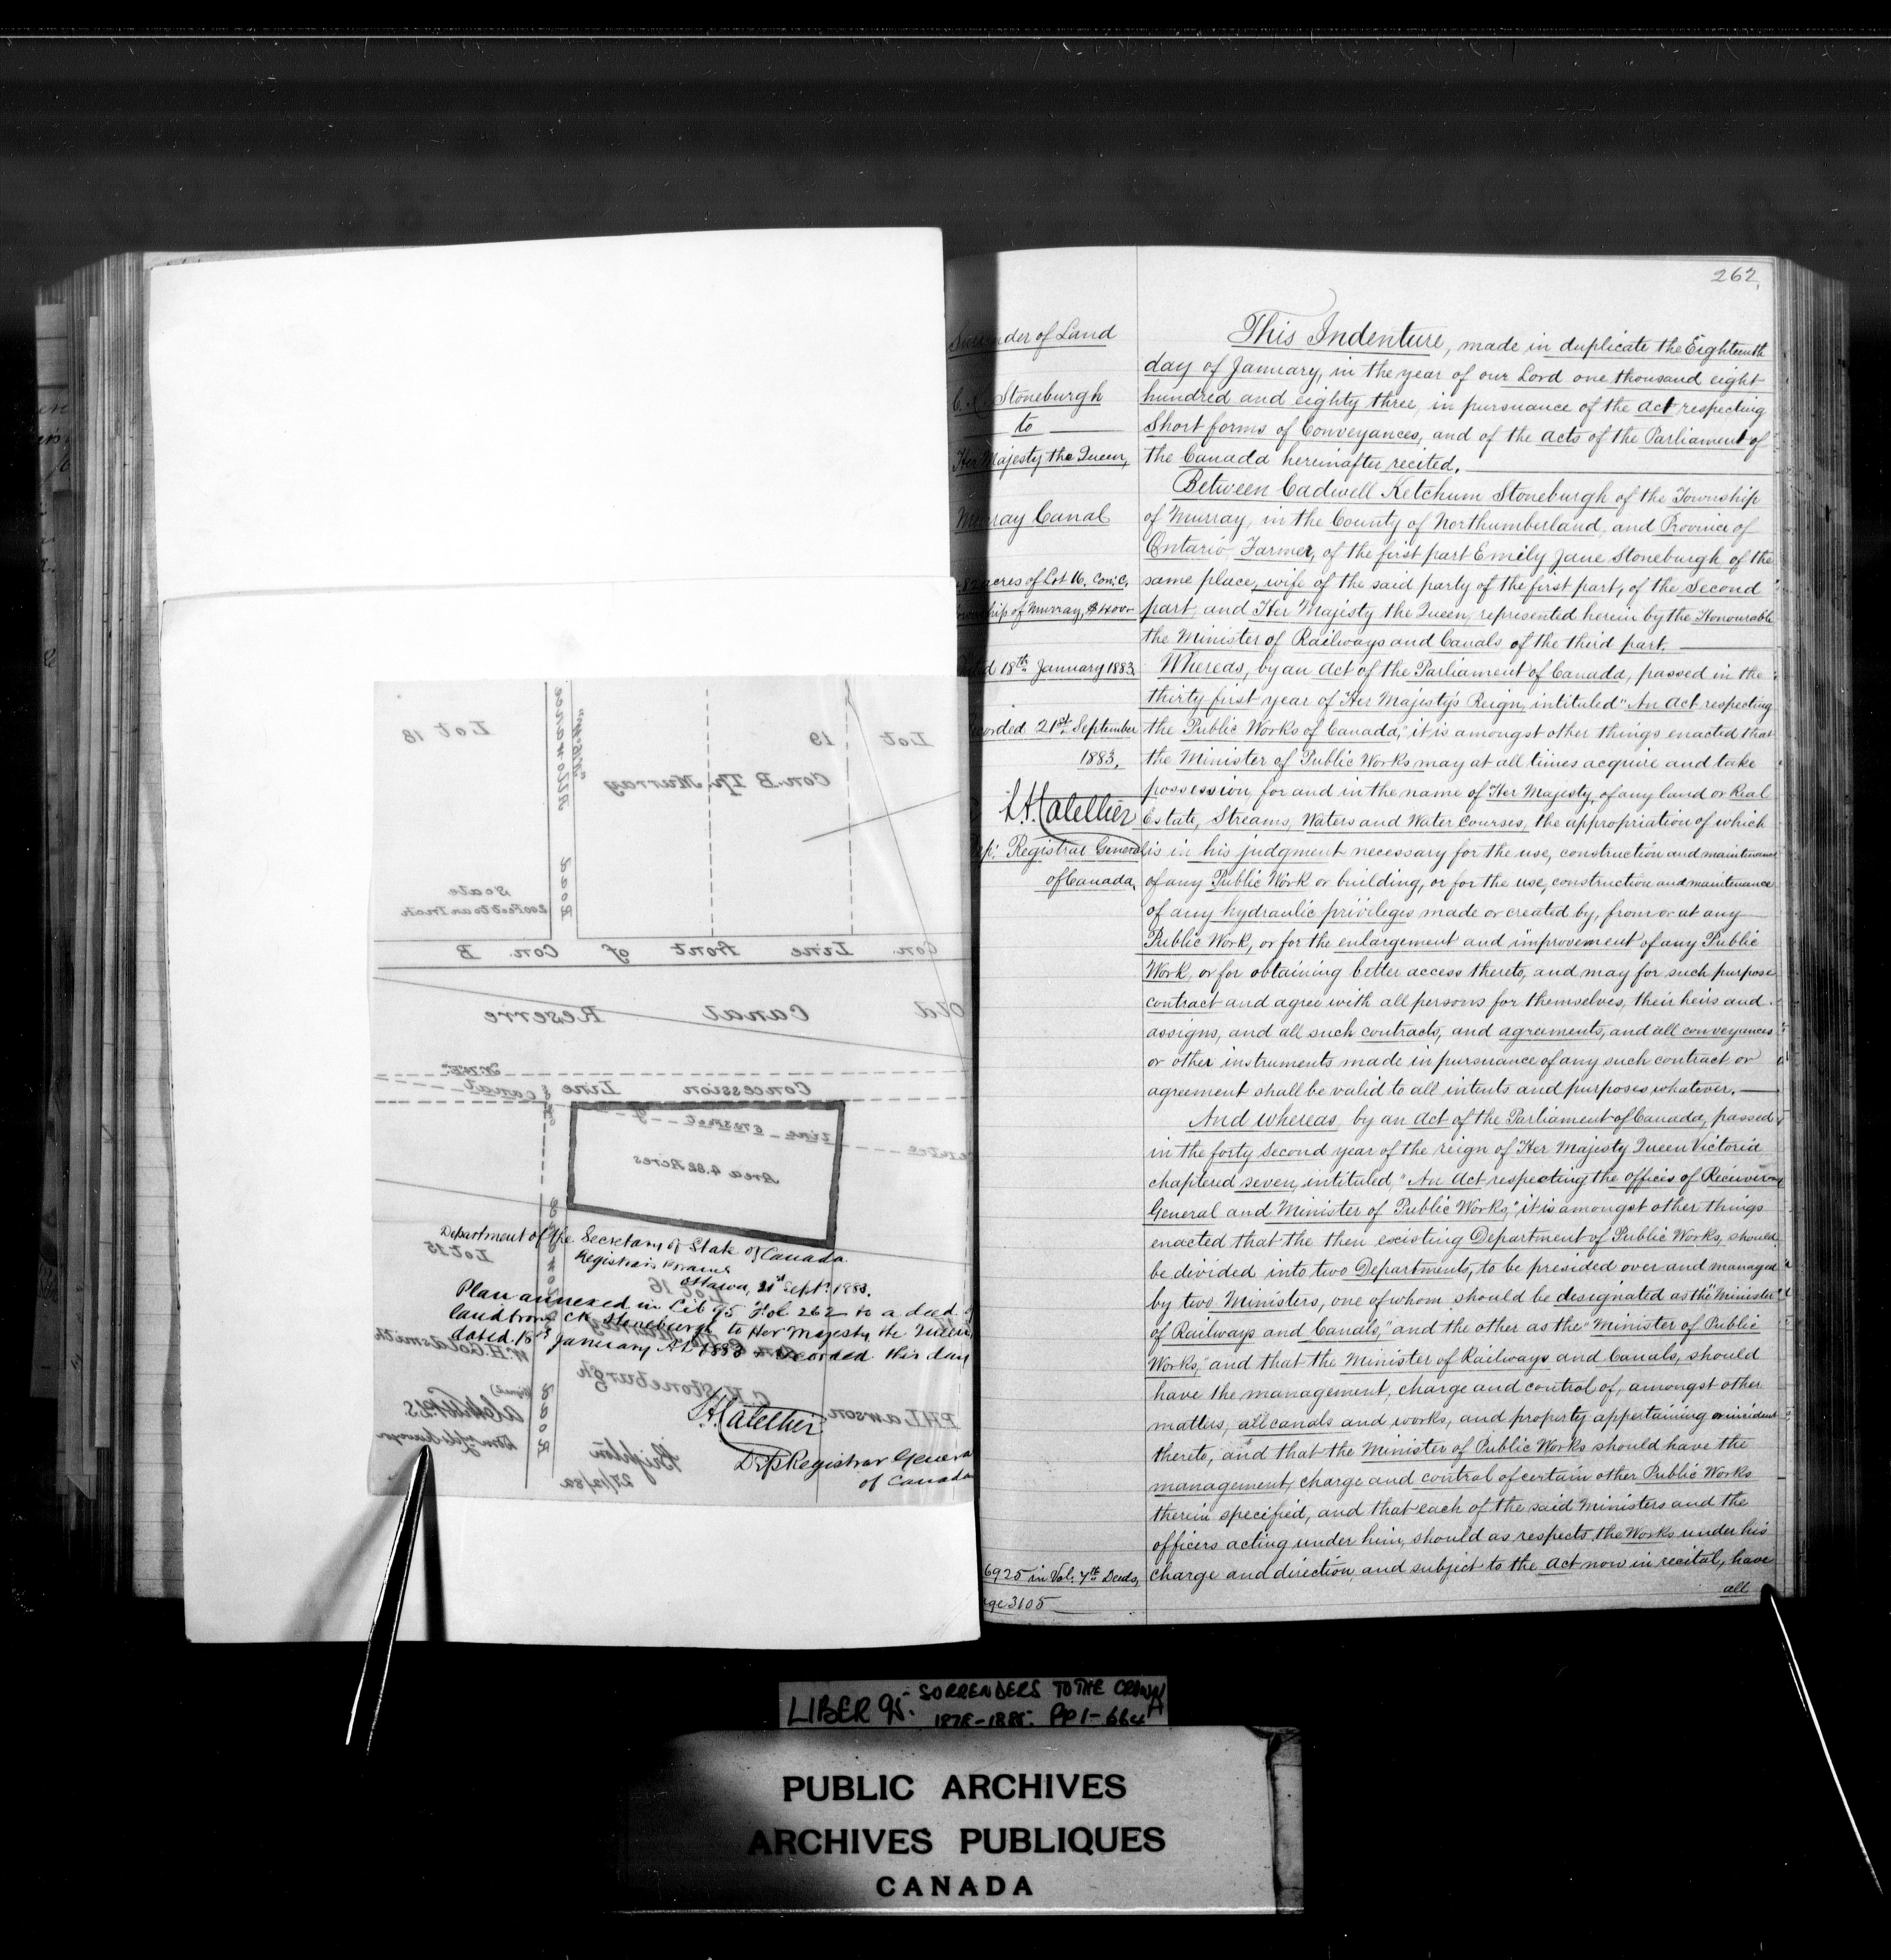 262
Surrender of Land
C. K. Stoneburgh
to
Her Majesty the Queen,
Murray Canal
4.82 acres of Lot 16, Con: C,
Township of Murray,
Dated 18th January 1883
Recorded 21st September
1883.
L. A. Catellier
Dep: Registrar General
of Canada.
6925 in Vol. 7th Deeds,
page 3105
This Indenture, made in duplicate the Eighteenth
day of January, in the year of our Lord one thousand eight
hundred and eighty three, in pursuance of the Act respecting
Short forms of Conveyances, and of the acts of the Parliament of
the Canada hereinafter recited.
Between Cadwell Ketchum Stoneburgh of the Township
of Murray, in the County of Northumberland, and Province of
Ontario, Farmer, of the first part Emily Jane Stoneburgh of the
same place, wife of the said party of the first part, of the Second
part, and Her Majesty the Queen, represented herein by the Honourable
the Minister of Railways and Canals of the third part.
Whereas, by an Act of the Parliament of Canada, passed in the
thirty first year of Her Majesty's Reign, intituled "An Act respecting
the Public Works of Canada," it is amongst other things enacted that
the Minister of Public Works may at all times acquire and take
possession for and in the name of Her Majesty, of any land or Real
Estate, Streams, Waters and Water Courses, the appropriation of which
is in his judgment necessary for the use, construction and maintenance
of any Public Work or building, or for the use, construction and maintenance
of any hydraulic privileges made or created by, from or at any
Public Work, or for the enlargement and improvement of any Public
Work, or for obtaining better access thereto, and may for such purpose
contract and agree with all persons for themselves, their heirs and
assigns, and all such contracts, and agreements, and all conveyances
or other instruments made in pursuance of any such contract or
agreement shall be valid to all intents and purposes whatever.
And whereas, by an Act of the Parliament of Canada, passed
in the forty second year of the reign of Her Majesty Queen Victoria
chaptered seven, intituled, "An Act respecting the offices of Receiver
General and Minister of Public Works," it is amongst other things
enacted that the then existing Department of Public Works, should
be divided into two Departments, to be presided over and managed
by two Ministers, one of whom should be designated as the "Minister
of Railways and Canals," and the other as the "Minister of Public
Works," and that the Minister of Railways and Canals, should
have the management, charge and control of, amongst other
matters, all canals and works, and property appertaining or incident
thereto, and that the Minister of Public Works should have the
management, charge and control of certain other Public Works
therein specified, and that each of the said Ministers and the
officers acting under him, should as respects the Works under his
charge and direction, and subject to the Act now in recital, have
all
Lot 18
19
Lot
Con. B Tp. Murray
Road
Scale
200 Feet to an Inch
Con. Line front of Con. B
Old Canal Reserve
Concession Line
Canal
Area 4.82 Acres
Lot 15
16
Department of the Secretary of State of Canada.
Registrar's Branch
Ottawa, 21st Sept. 1883.
Plan annexed in Lib 95 Fol. 262 to a deed of
land from C K Stoneburgh to Her Majesty the Queen
dated 18th January AD 1883 & Recorded this day
W. H. Goldsmith
C. K. Stoneburgh
P. H. Lawson
L. A. Catellier
Dep Registrar General
of Canada
Road
Brighton
LIBER 95: SURRENDERS TO THE CROWN
1878-1885. PP 1-664A
PUBLIC ARCHIVES
ARCHIVES PUBLIQUES
CANADA